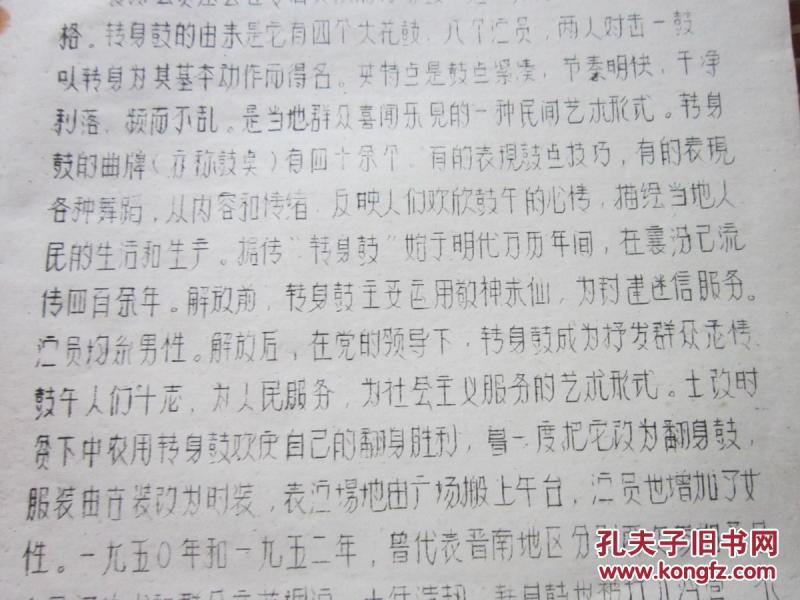 格。转身鼓的由来是它有四个大花鼓、八个演员，两人对击一鼓
以转身为其基本动作而得名。其特点是鼓点紧凑，节奏明快，干净
利落、频而不乱。是当地群众喜闻乐见的一种民间艺术形式。转身
鼓的曲牌（亦称鼓奌）有四十余个、有的表現鼓点技巧，有的表現
各种舞蹈，从内容和情绪、反映人们欢欣鼓午的心情，描绘当地人
民的生活和生产。据传“转身鼓”始于明代万历年间，在襄汾已流
传四百余年。解放前，转身鼓主要运用敬神求仙，为封建迷信服务。
演员均系男性。解放后，在党的领导下，转身鼓成为抒发群众感情
鼓午人们斗志，为人民服务，为社会主义服务的艺术形式。土改时
贫下中农用转身鼓欢庆自己的翻身胜利，曾一度把它改为翻身鼓，
服装由古装改为时装，表演場地由广场搬上午台，演员也增加了女
性。一九五〇年和一九五二年，曾代表晋南地区分别
孔夫子旧书网